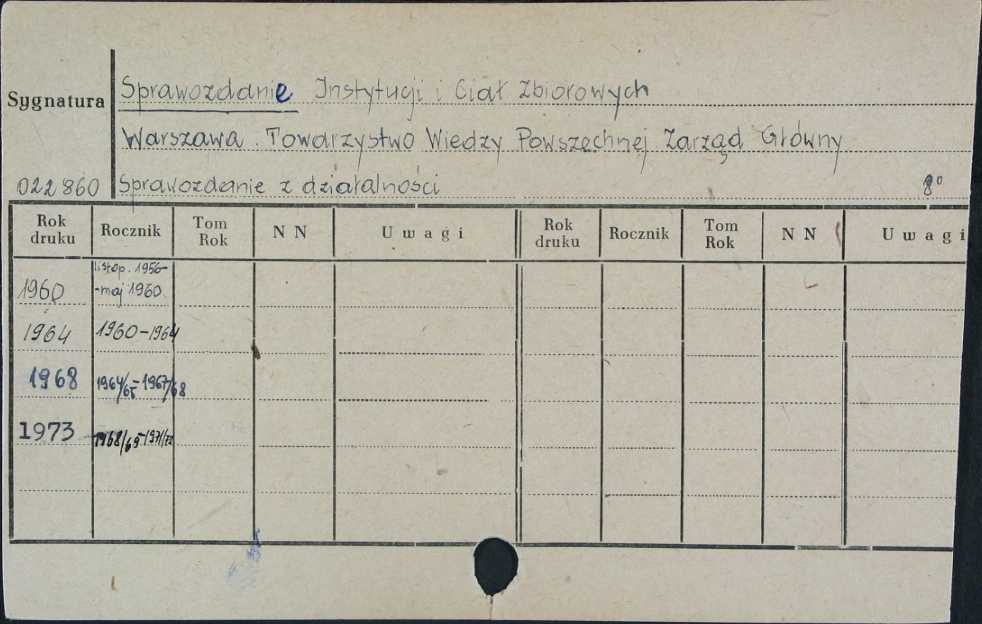 Sygnatura Sprawozdanie Instytucji i Ciał Zbiorowych
Warszawa. Towarzystwo Wiedzy Powszechnej Zarząd Główny
022860 Sprawozdanie z działalności 8°
Rok druku Rocznik Tom Rok N N Uwagi Rok druku Rocznik Tom Rok N N Uwagi
1960 listop. 1956- -maj 1960
1964 1960-1964
1968 1964/65-1967/68
1973 1968/69-1971/72